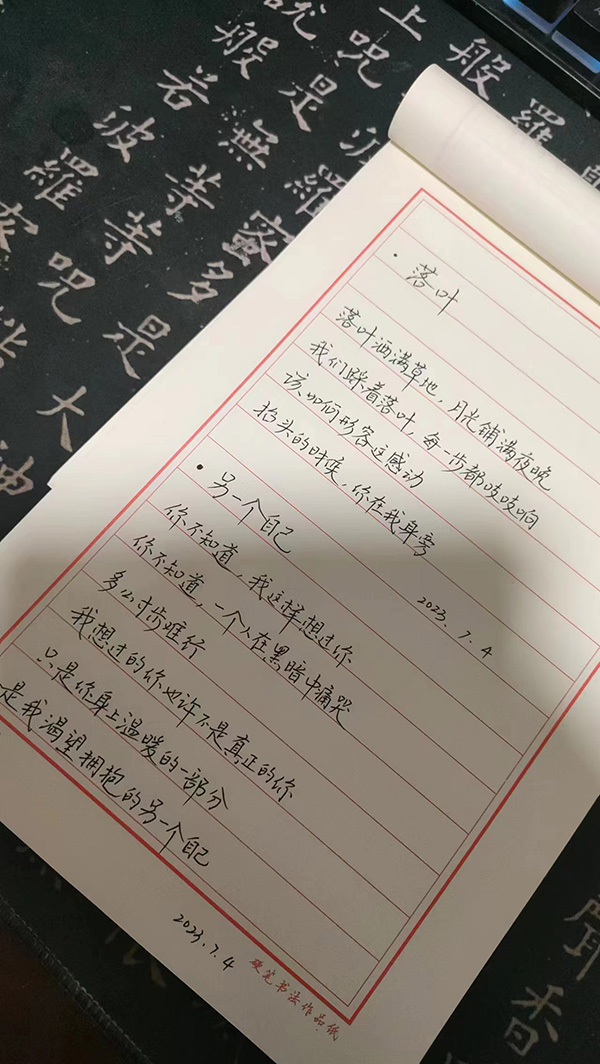 ·落叶
落叶洒满草地，月光铺满夜晚
我们踩着落叶，每一步都吱吱响
该如何形容这感动
抬头的时候，你在我身旁
2023.7.4
·另一个自己
你不知道，我这样想过你
你不知道，一个人在黑暗中痛哭
多么寸步难行
我想过的你也许不是真正的你
只是你身上温暖的一部分
是我渴望拥抱的另一个自己
2023.7.4
硬笔书法作品纸
上般羅
說咒
般是
若無羅
波等蜜
羅等多
咒是
皆大
神
香